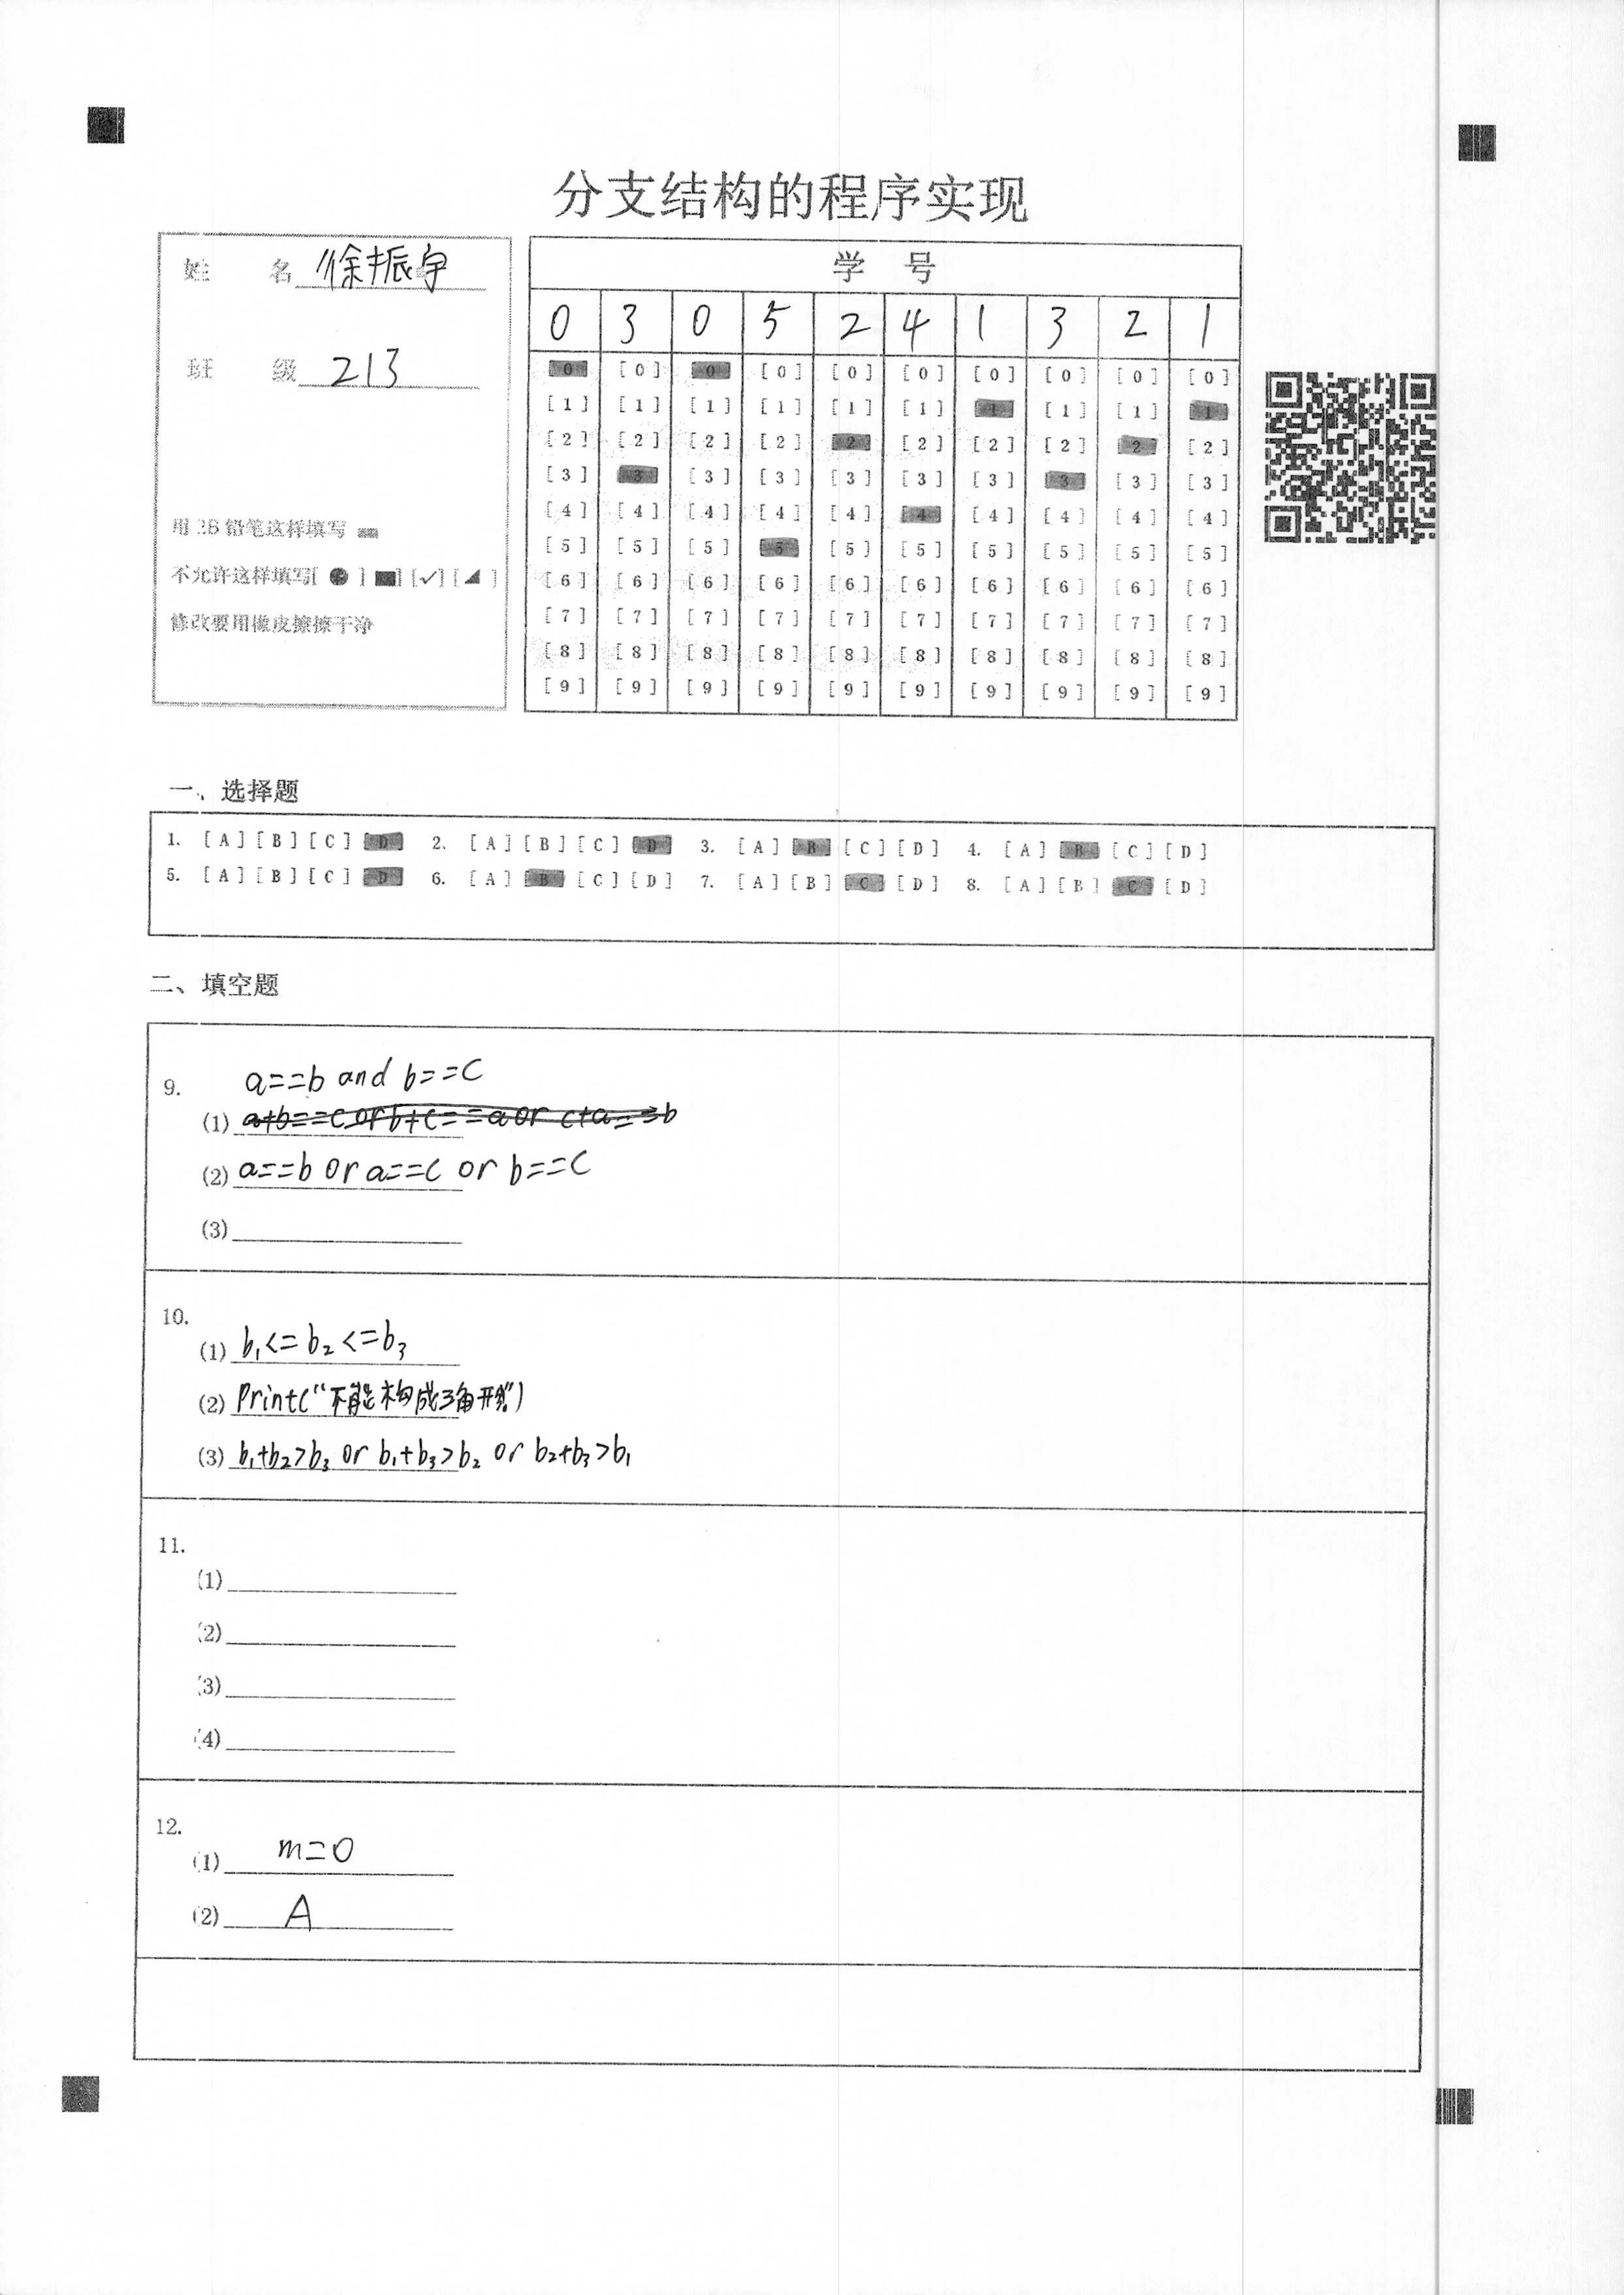 分支结构的程序实现
姓 名 徐振宇
班 级 213
用 2B 铅笔这样填写
不允许这样填写[ ● ] ■] [✓] [ ◢ ]
修改要用橡皮擦擦干净
学 号
0 3 0 5 2 4 1 3 2 1
[0] [0] [0] [0] [0] [0] [0] [0] [0] [0]
[1] [1] [1] [1] [1] [1] [1] [1] [1] [1]
[2] [2] [2] [2] [2] [2] [2] [2] [2] [2]
[3] [3] [3] [3] [3] [3] [3] [3] [3] [3]
[4] [4] [4] [4] [4] [4] [4] [4] [4] [4]
[5] [5] [5] [5] [5] [5] [5] [5] [5] [5]
[6] [6] [6] [6] [6] [6] [6] [6] [6] [6]
[7] [7] [7] [7] [7] [7] [7] [7] [7] [7]
[8] [8] [8] [8] [8] [8] [8] [8] [8] [8]
[9] [9] [9] [9] [9] [9] [9] [9] [9] [9]
一、选择题
1. [A] [B] [C] [D] 2. [A] [B] [C] [D] 3. [A] [B] [C] [D] 4. [A] [B] [C] [D]
5. [A] [B] [C] [D] 6. [A] [B] [C] [D] 7. [A] [B] [C] [D] 8. [A] [B] [C] [D]
二、填空题
9. a==b and b==c
(1) a+b==c or b+c==a or c+a==b
(2) a==b or a==c or b==c
(3)
10.
(1) b₁<=b₂<=b₃
(2) Print("不能构成三角形")
(3) b₁+b₂>b₃ or b₁+b₃>b₂ or b₂+b₃>b₁
11.
(1)
(2)
(3)
(4)
12.
(1) m=0
(2) A